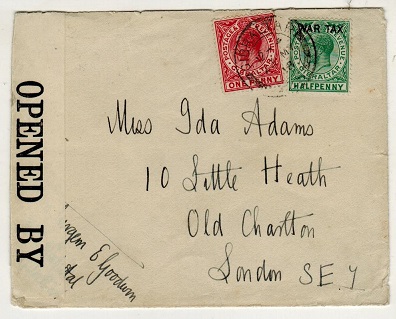 OPENED BY
POSTAGE & REVENUE
GIBRALTAR
ONE PENNY
WAR TAX
POSTAGE & REVENUE
GIBRALTAR
HALFPENNY
Miss Ida Adams
10 Little Heath
Old Charlton
London S.E.7
E Goodwin